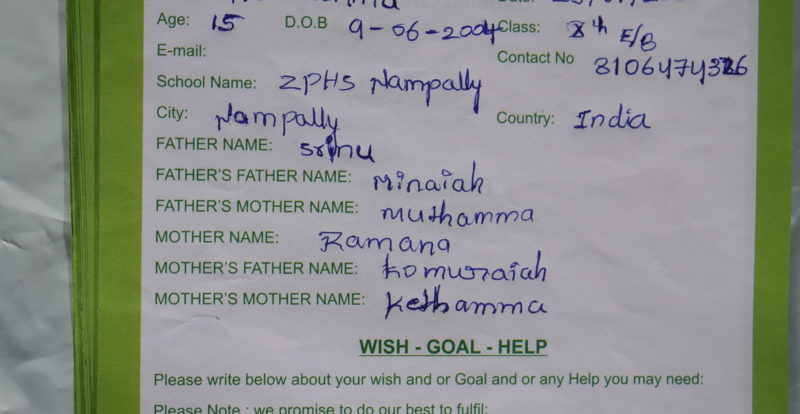 Age: 15 D.O.B 9-06-2004 Class: X th E/B
E-mail:
Contact No 8106474326
School Name: ZPHS Nampally
City: Nampally Country: India
FATHER NAME: Srinu
FATHER'S FATHER NAME: Minaiah
FATHER'S MOTHER NAME: Muthamma
MOTHER NAME: Ramana
MOTHER'S FATHER NAME: Komuraiah
MOTHER'S MOTHER NAME: Kethamma
WISH - GOAL - HELP
Please write below about your wish and or Goal and or any Help you may need:
Please Note : we promise to do our best to fulfil: